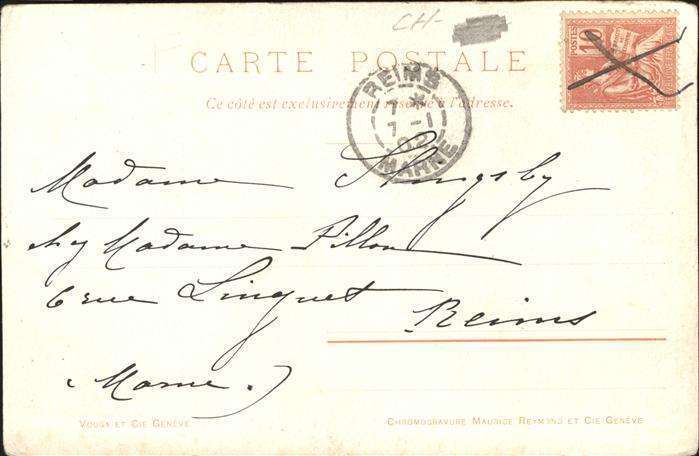 CH-
CARTE POSTALE
Ce côté est exclusivement réservé à l'adresse.
POSTES 10
REIMS
7 *
7 -1
02
MARNE
Madame Slingsby
chez Madame Pillon
6 rue Linguet
Reims
(Marne.)
VOUGA ET CIE GENÈVE
CHROMOGRAVURE MAURICE REYMOND ET CIE GENÈVE